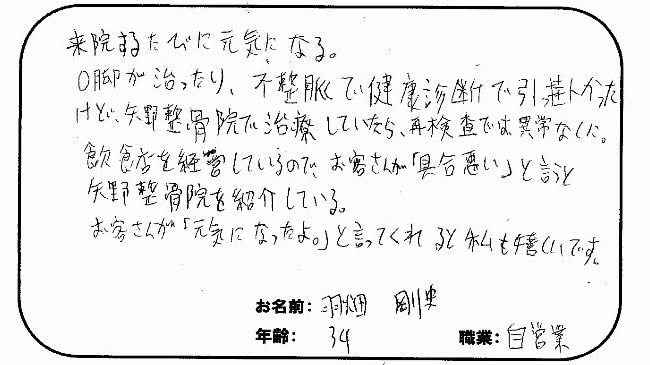 来院するたびに元気になる。
O脚が治ったり、不整脈で健康診断で引っ掛かった
けど、矢野整骨院で治療していたら、再検査では異常なしに。
飲食店を経営しているので、お客さんが「具合悪い」と言うと
矢野整骨院を紹介している。
お客さんが「元気になったよ。」と言ってくれると私も嬉しいです。
お名前: 羽畑 剛史
年齢: 34
職業: 自営業